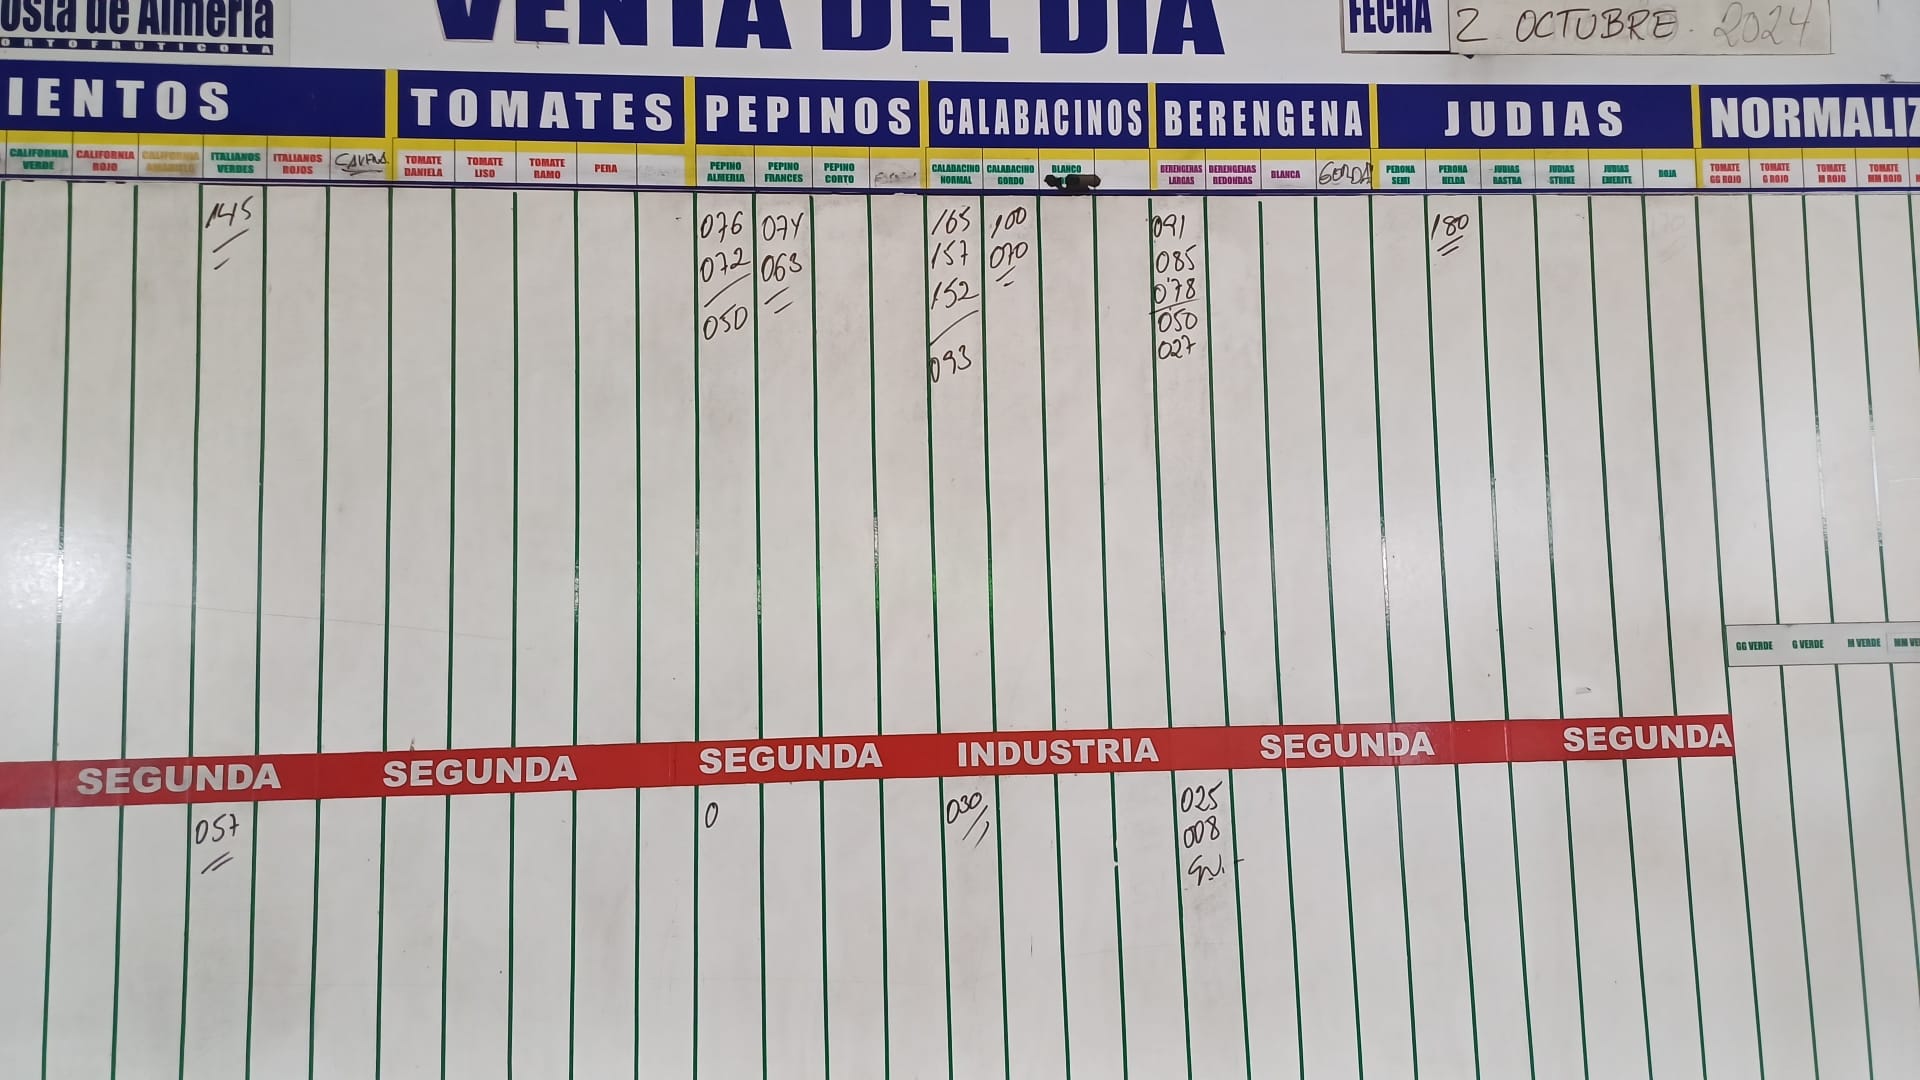 osta de Almería
ORTOFRUTICOLA
VENTA DEL DIA
FECHA
2 OCTUBRE. 2024
IENTOS
TOMATES
PEPINOS
CALABACINOS
BERENGENA
JUDIAS
NORMALIZ
CALIFORNIA VERDE
CALIFORNIA ROJO
CALIFORNIA AMARILLO
ITALIANOS VERDES
ITALIANOS ROJOS
TOMATE DANIELA
TOMATE LISO
TOMATE RAMO
PERA
PEPINO ALMERIA
PEPINO FRANCES
PEPINO CORTO
CALABACINO NORMAL
CALABACINO GORDO
BLANCO
BERENGENAS LARGAS
BERENGENAS REDONDAS
BLANCA
GORDA
PERONA SEMI
PERONA HELDA
JUDIAS RASTRA
JUDIAS STRIKE
JUDIAS EMERITE
ROJA
TOMATE GG ROJO
TOMATE G ROJO
TOMATE M ROJO
TOMATE MM ROJO
145
076
072
050
074
063
165
157
152
093
100
070
091
085
0'78
050
027
180
GG VERDE
G VERDE
M VERDE
MM VE
SEGUNDA
SEGUNDA
SEGUNDA
INDUSTRIA
SEGUNDA
SEGUNDA
057
0
030
025
008